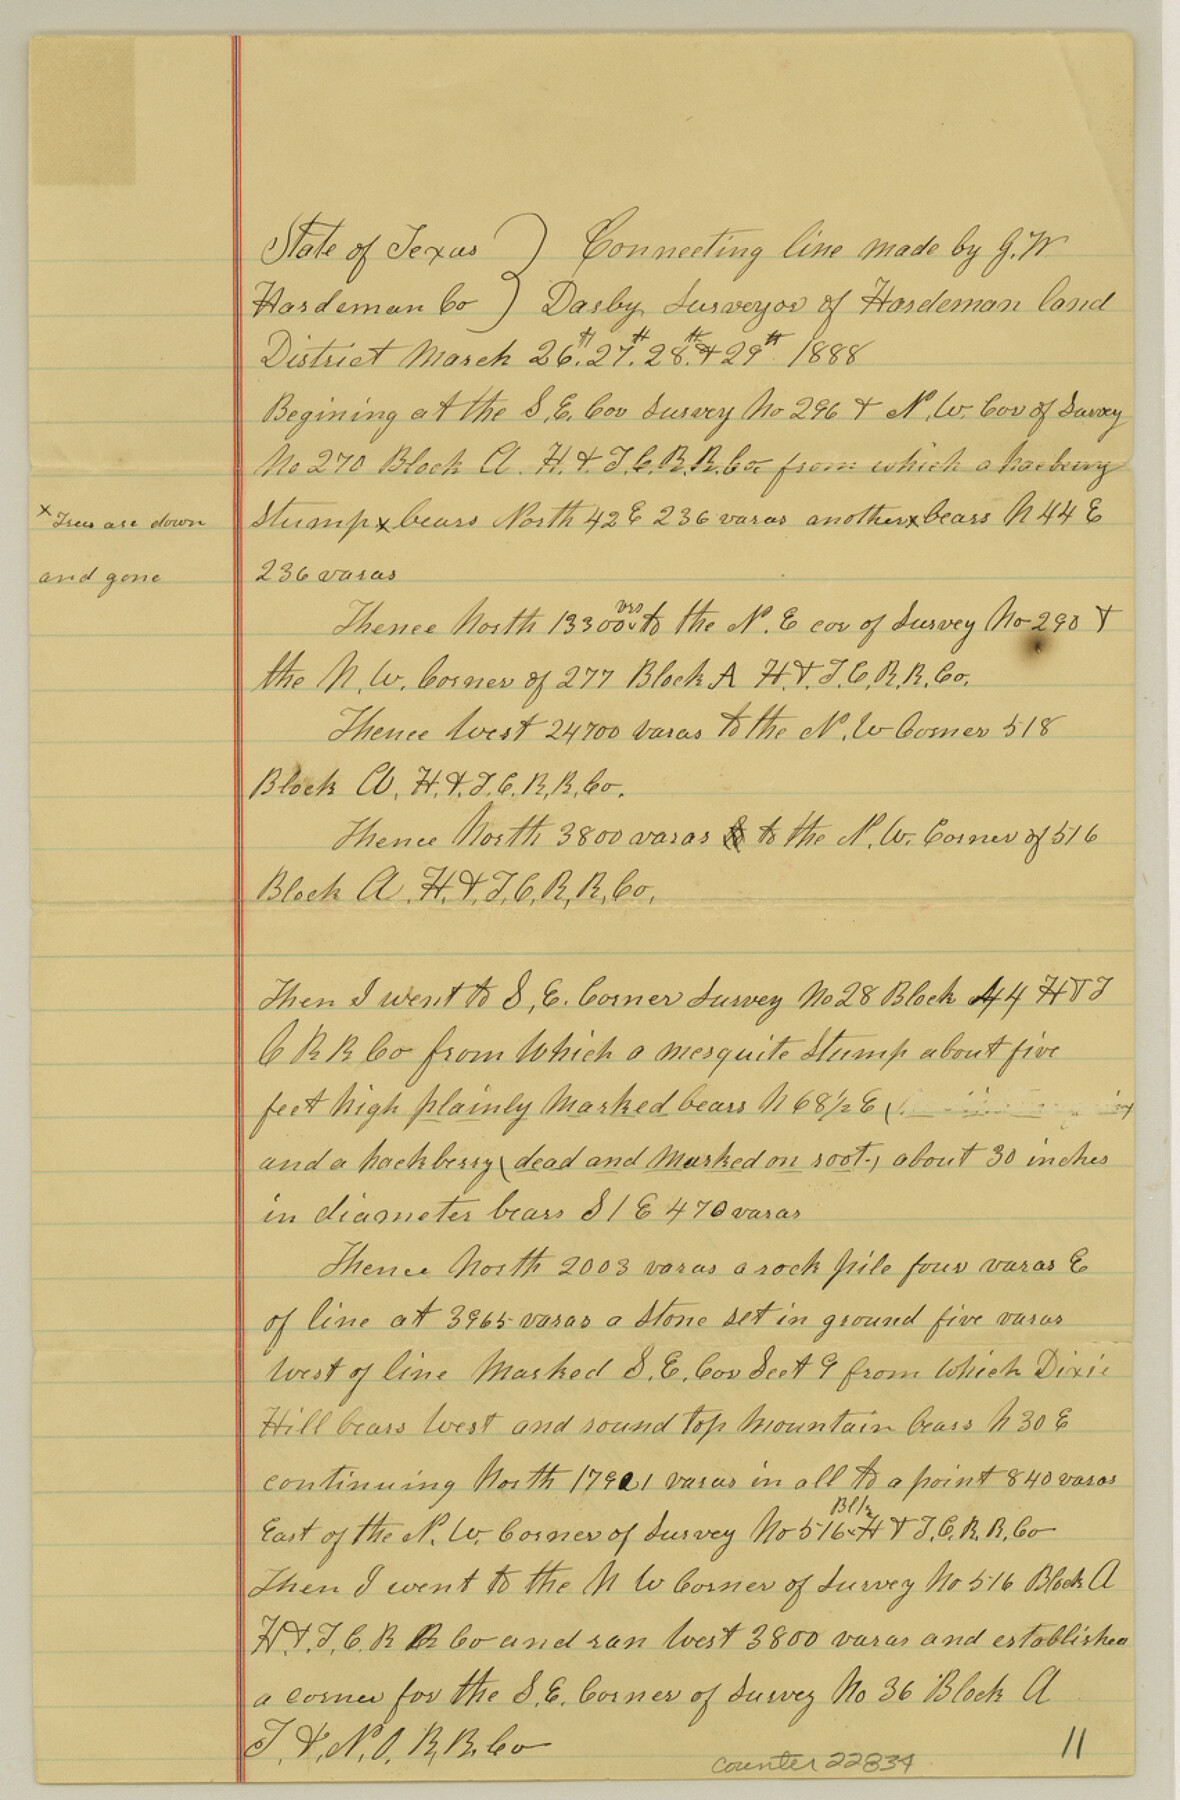 State of Texas ) Connecting line made by G. W
Hardeman Co ) Darby, Surveyor of Hardeman land
District March 26th. 27th. 28th. & 29th. 1888
Begining at the S. E. Cor Survey No 296 & N. W. Cor of Survey
No 270 Block A. H. & T. C. R. R. Co. from which a hacberry
x Trees are down
Stump x bears North 42 E 236 varas another x bears N 44 E
and gone
236 varas
Thence North 13300 vrs to the N. E cor of Survey No 290 &
the N. W. Corner of 277 Block A H. & T. C. R. R. Co.
Thence West 24700 varas to the N. W Corner 518
Block A. H. & T. C. R. R. Co.
Thence North 3800 varas to the N. W. Corner of 516
Block A. H. & T. C. R. R. Co.
Then I went to S. E. Corner Survey No 28 Block 44 H & T
C R R Co from which a mesquite Stump about five
feet high plainly Marked bears N 68 1/2 E (
and a hackberry (dead and Marked on root.) about 30 inches
in diameter bears S 1 E 470 varas
Thence North 2003 varas a rock pile four varas E
of line at 3965 varas a Stone set in ground five varas
West of line Marked S. E. Cor Sect 9 from Which Dixie
Hill bears West and round top Mountain bears N 30 E
continuing North 17901 varas in all to a point 840 varas
East of the N. W. Corner of Survey No 516 Blk H & T. C. R. R. Co
Then I went to the N W Corner of Survey No 516 Block A
H. & T. C. R R Co and ran West 3800 varas and established
a corner for the S. E. Corner of Survey No 36 Block A
T. & N. O. R. R. Co
counter 22834
11